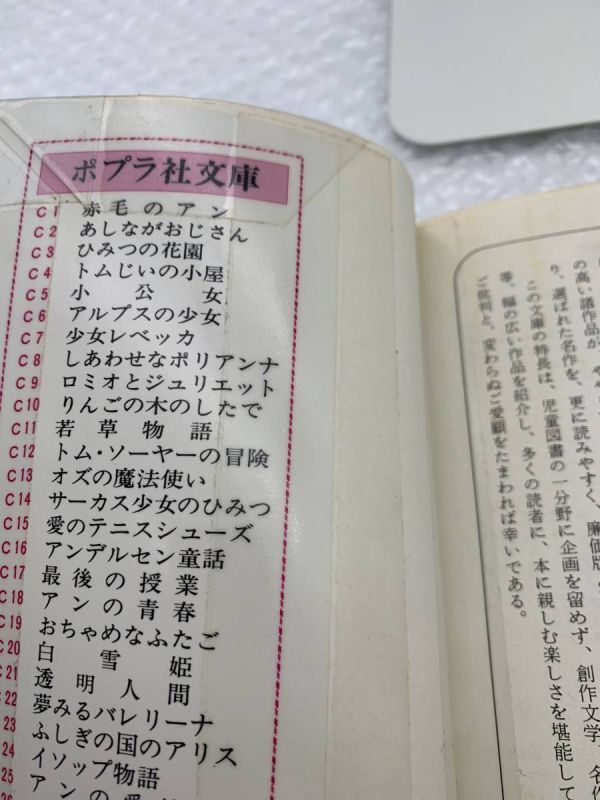 ポプラ社文庫
C 1 赤毛のアン
C 2 あしながおじさん
C 3 ひみつの花園
C 4 トムじいの小屋
C 5 小公女
C 6 アルプスの少女
C 7 少女レベッカ
C 8 しあわせなポリアンナ
C 9 ロミオとジュリエット
C10 りんごの木のしたで
C11 若草物語
C12 トム・ソーヤーの冒険
C13 オズの魔法使い
C14 サーカス少女のひみつ
C15 愛のテニスシューズ
C16 アンデルセン童話
C17 最後の授業
C18 アンの青春
C19 おちゃめなふたご
C20 白雪姫
21 透明人間
22 夢みるバレリーナ
23 ふしぎの国のアリス
24 イソップ物語
25 アンの愛
の高い諸作品が
り、選ばれた名作を、更に読みやすく、廉価版
この文庫の特長は、児童図書の一分野に企画を留めず、創作文学、名作
等、幅の広い作品を紹介し、多くの読者に、本に親しむ楽しさを堪能して
ご批判と、変わらぬご愛顧をたまわれば幸いである。